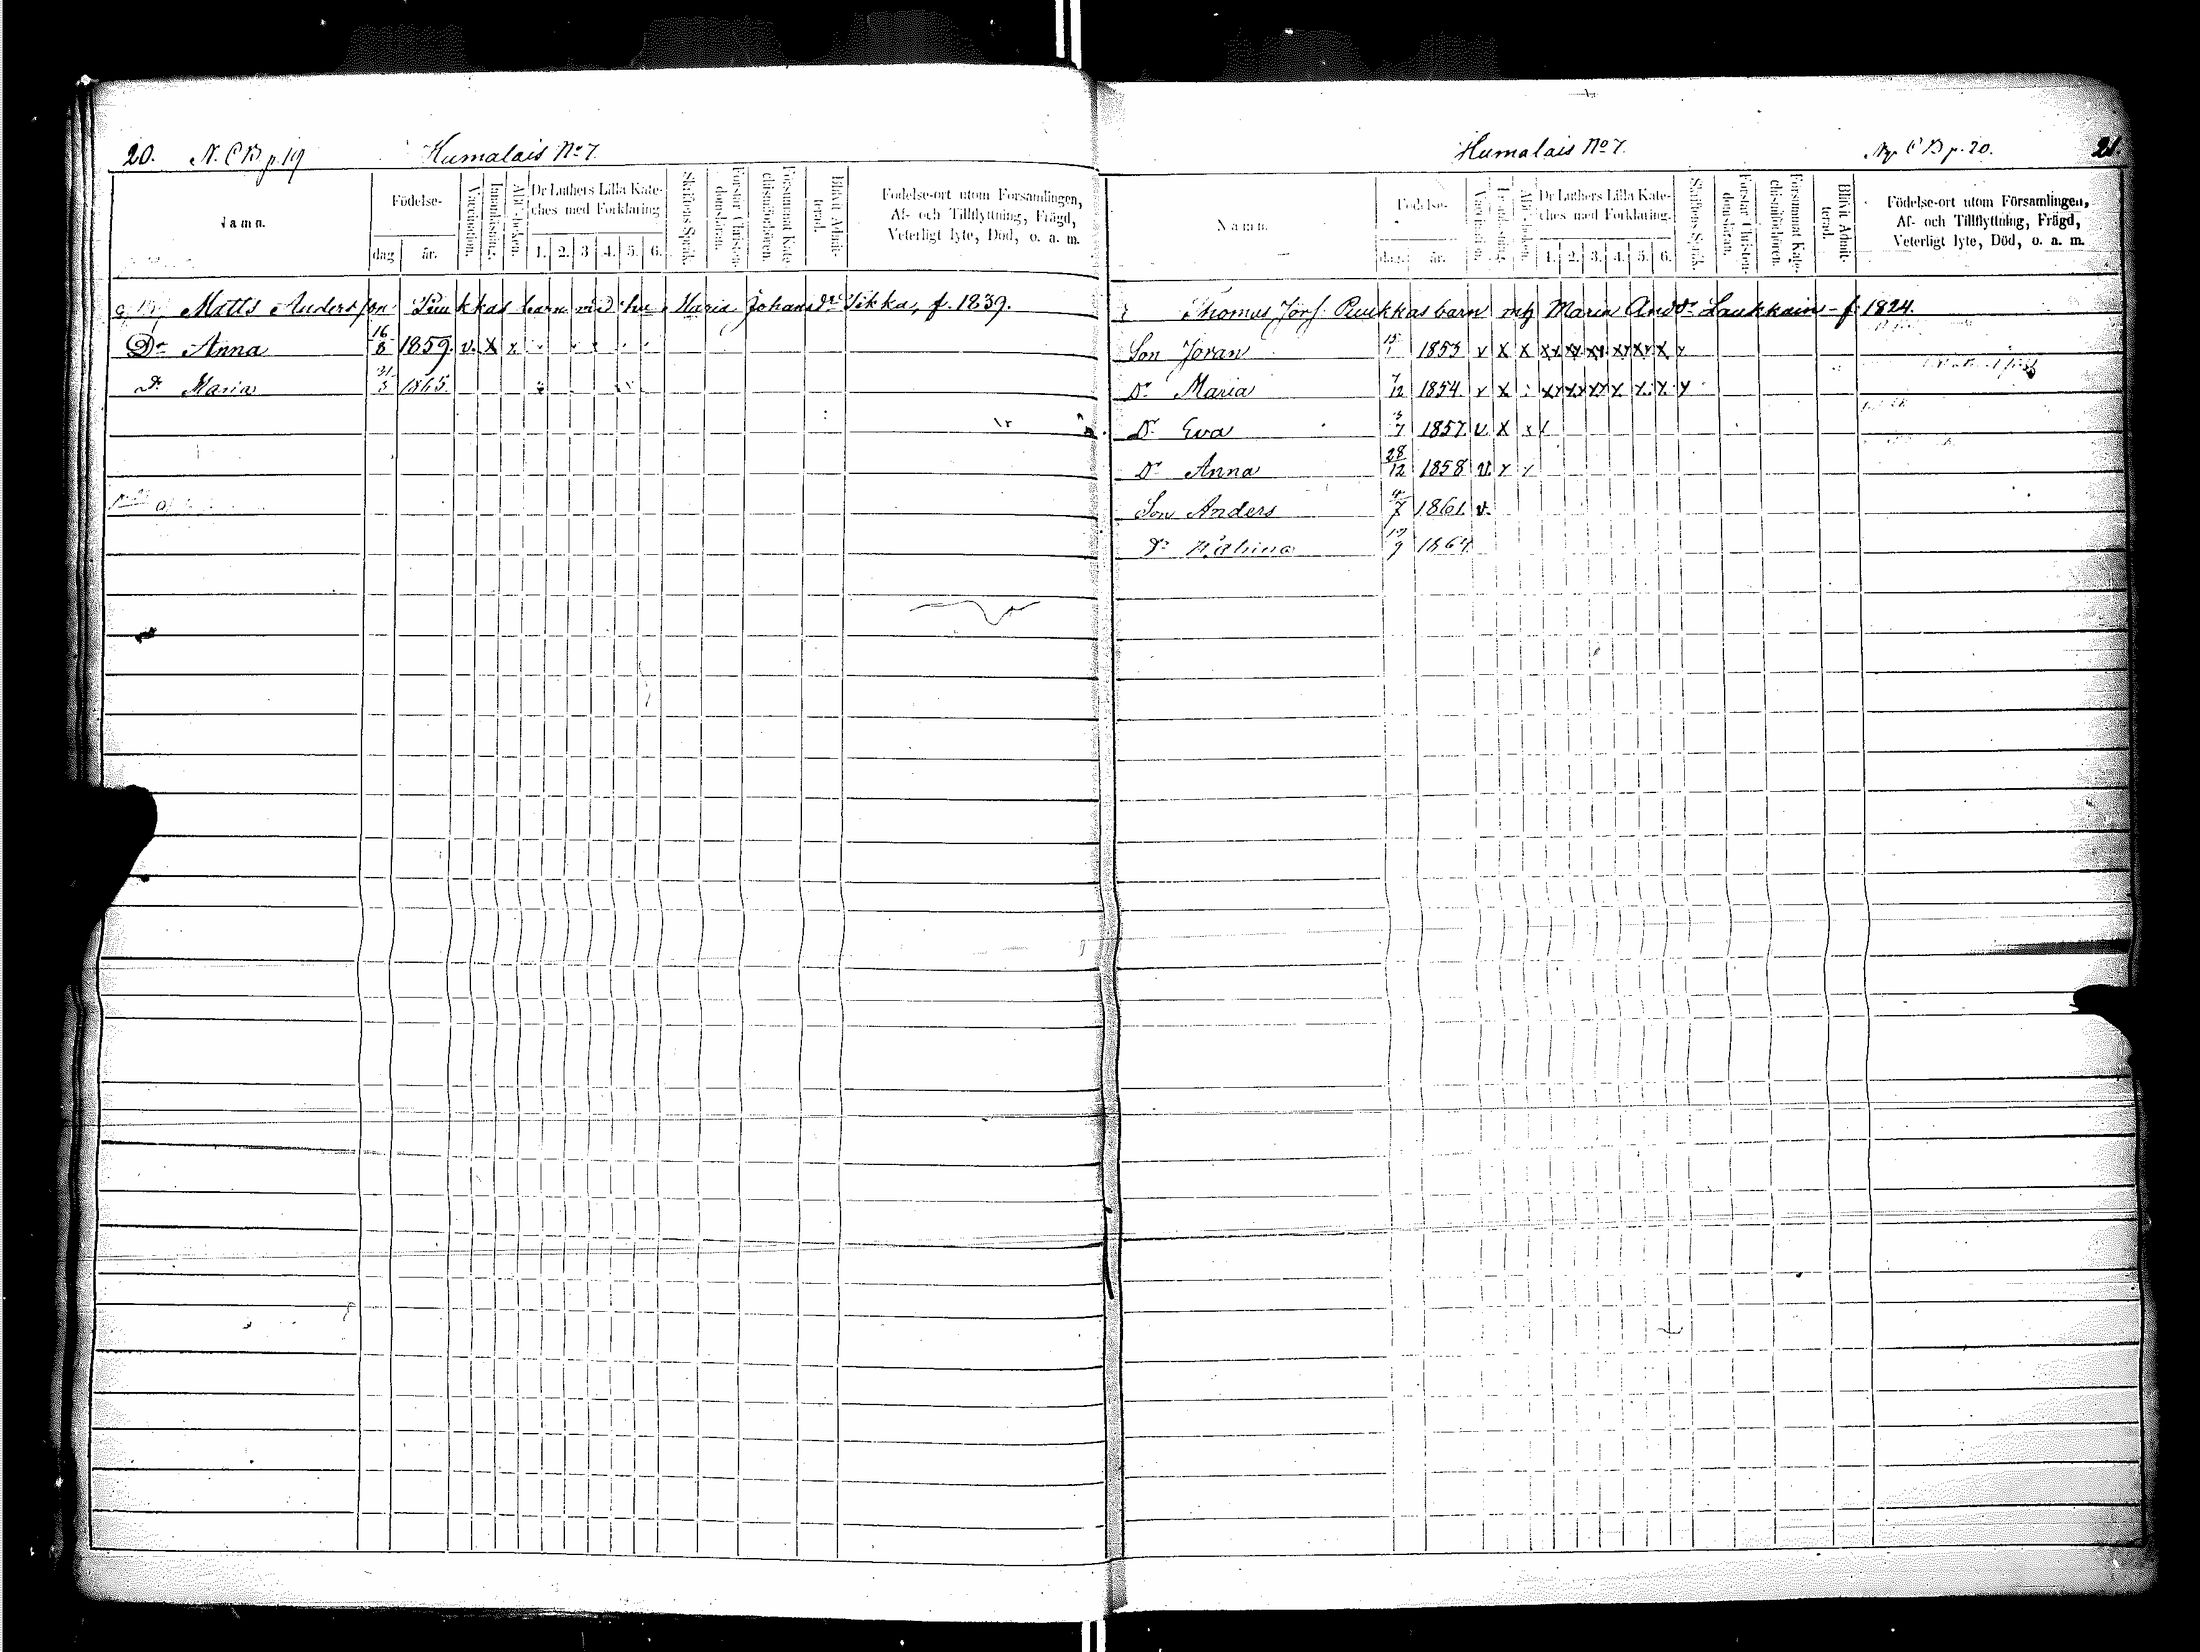 20. N. C B p. 19 Humalais No 7.
Namn. Födelse- dag år. Vaccination. Innanläsning. Abc-boken. Dr Luthers Lilla Kateches med Förklaring 1. 2. 3 4. 5. 6. Skriftens Språk. Förstår Christendomsläran. Försummat Katechismiförhören. Blifvit Admitterad. Födelse-ort utom Församlingen, Af- och Tillflyttning, Frägd, Veterligt lyte, Död, o. a. m.
Matts Andersson Puukkas barn med hu Maria Johansdr Sikka, f. 1839.
Dr Anna 16/8 1859. v. X x
Dr Maria 31/3 1865.
Humalais No 7. Ny. C B p. 20. 21.
Namn. Födelse- dag. år. Dr Luthers Lilla Kateches med Förklaring. 1. 2. 3. 4. 5. 6. Skriftens Språk. Förstår Christendomsläran. Försummat Katechismiförhören. Blifvit Admitterad. Födelse-ort utom Församlingen, Af- och Tillflyttning, Frägd, Veterligt lyte, Död, o. a. m.
Thomas Jörs. Puukkas barn m Maria Anddr Laukkain - f. 1824.
Son Jöran 1853 v X X
Dr Maria 7/12 1854. v X
Dr Eva 3/7 1857. v. X x
Dr Anna 28/12 1858 v. x x
Son Anders 4/7 1861. v.
Dr 1864.